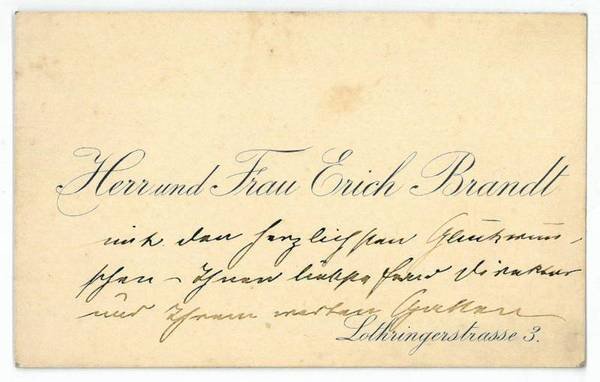 Herr und Frau Erich Brandt
mit den herzlichsten Glückwün-
schen – Ihnen liebste Frau Direktor
und Ihrem werten Gatten
Lothringerstrasse 3.